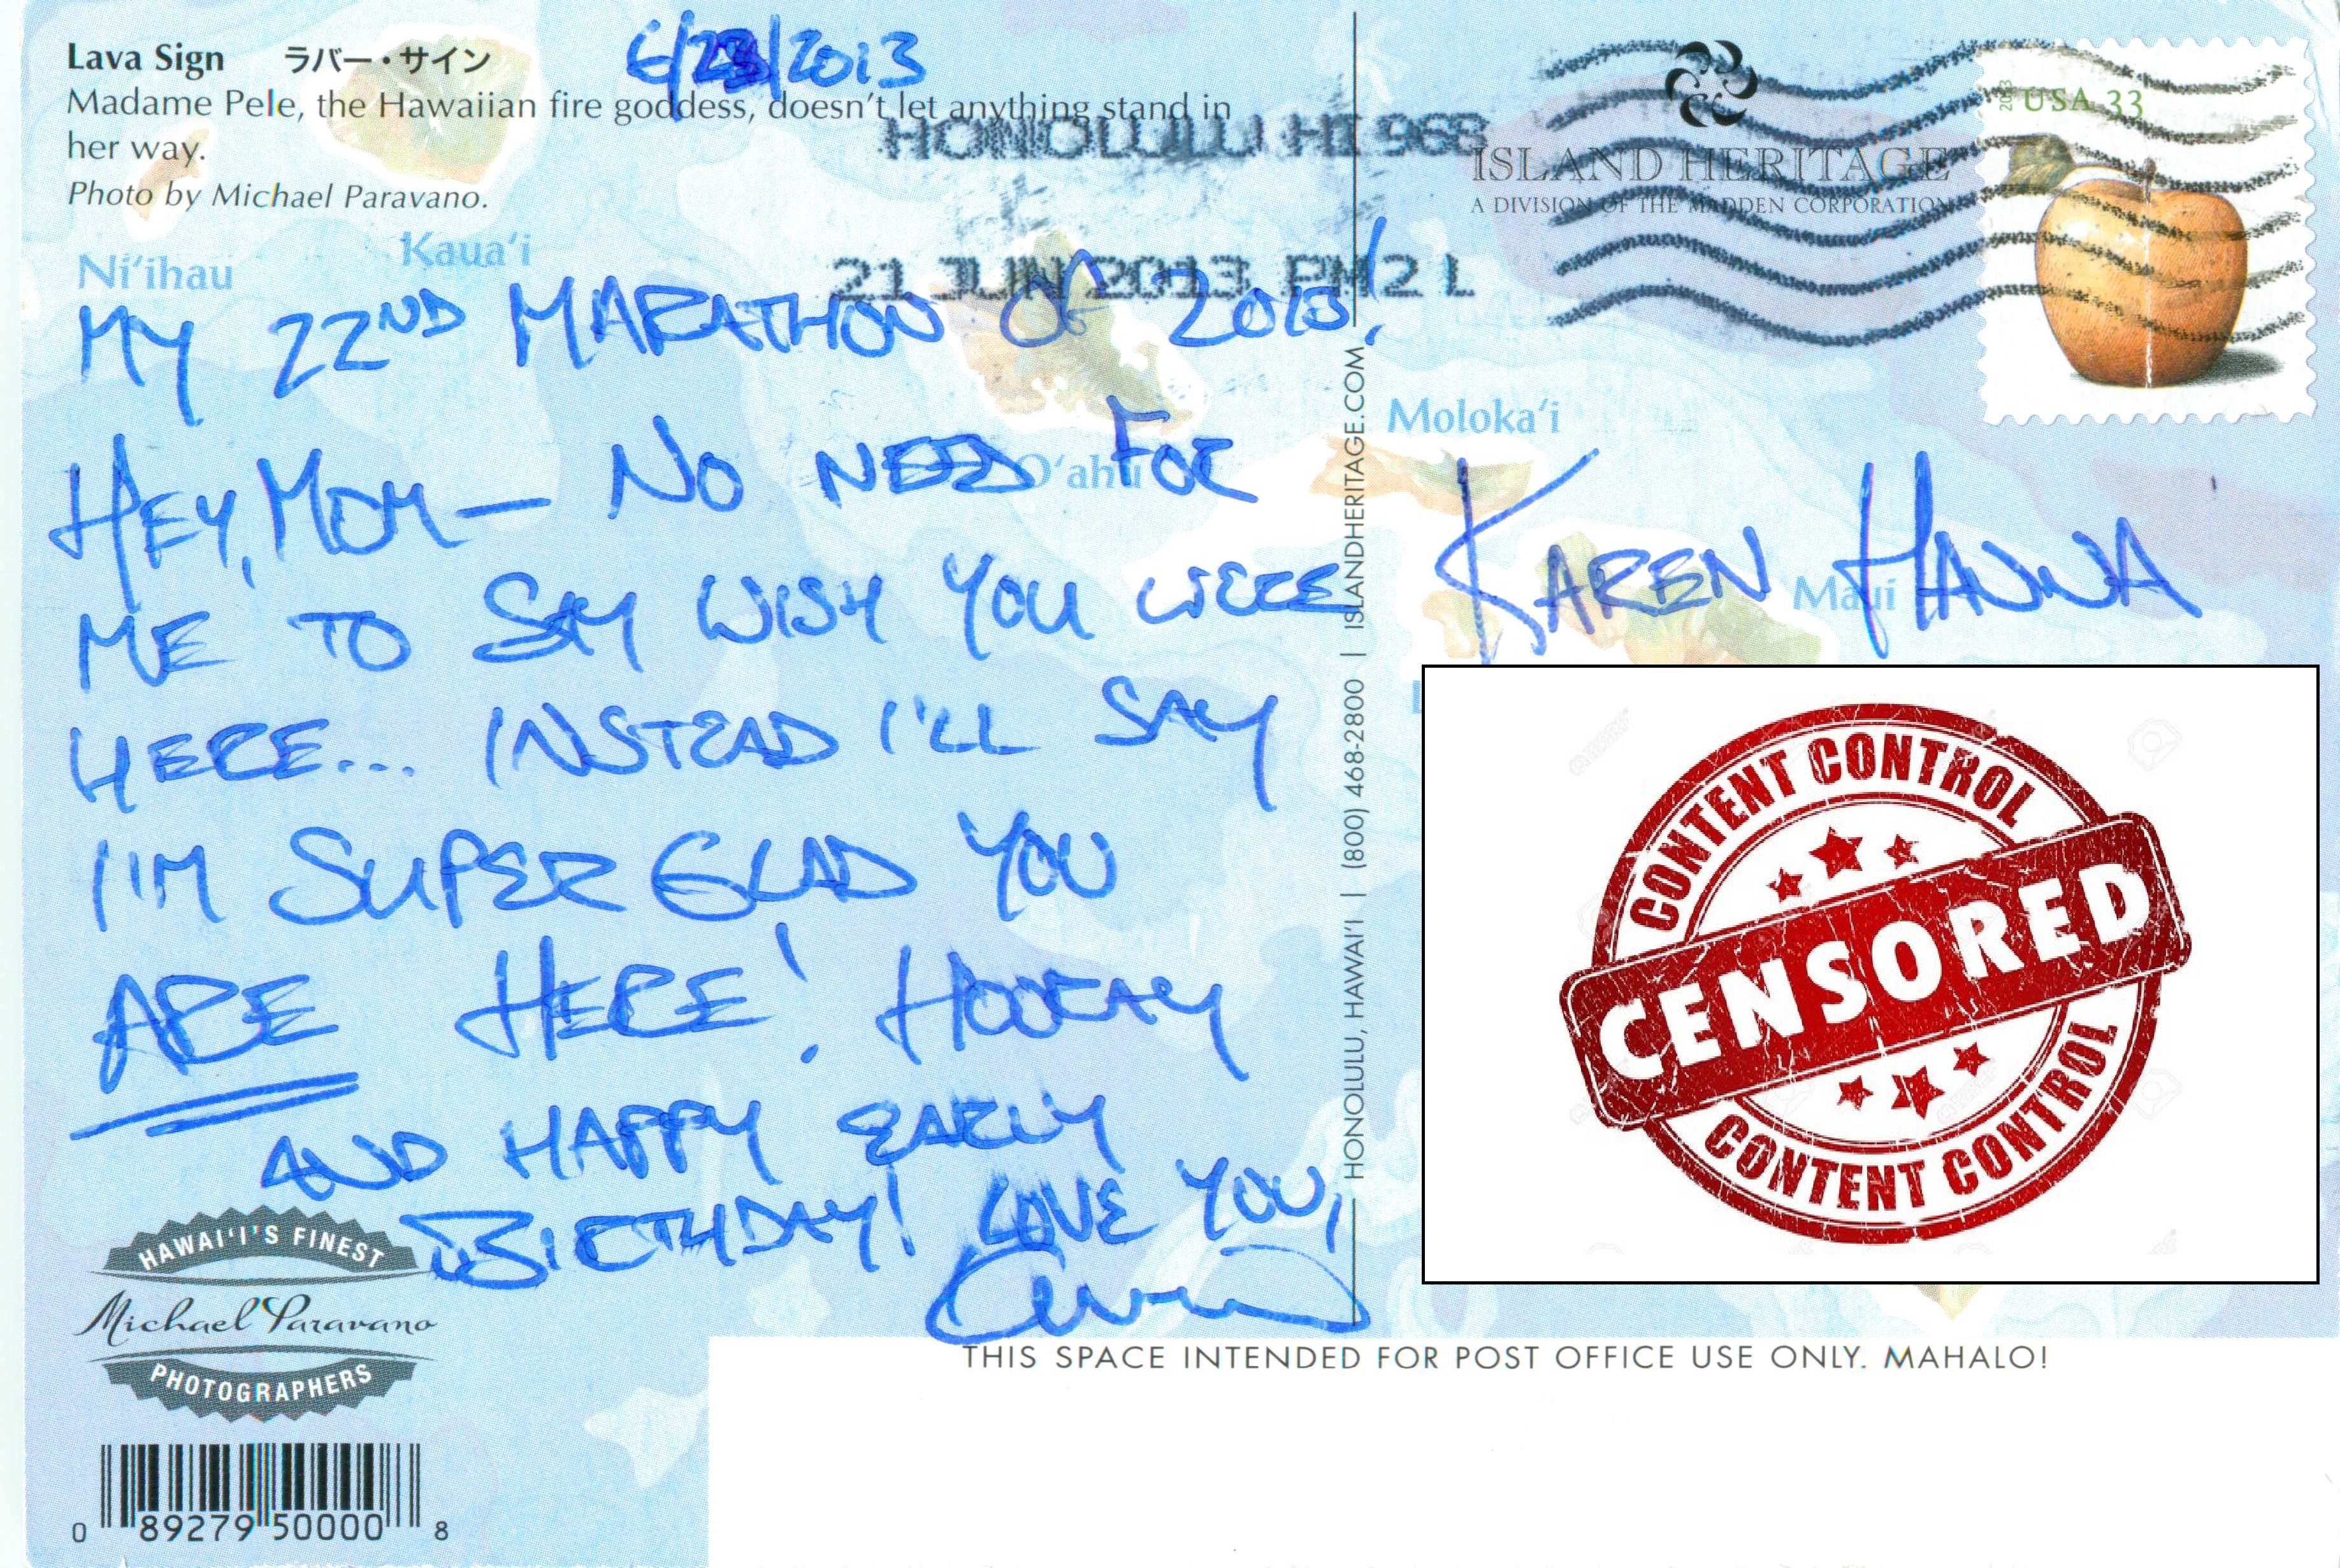 Lava Sign ラバー・サイン
6/23/2013
Madame Pele, the Hawaiian fire goddess, doesn't let anything stand in
her way.
Photo by Michael Paravano.
HONOLULU HI 968
21 JUN 2013 PM 2 L
ISLAND HERITAGE
A DIVISION OF THE MADDEN CORPORATION
2013
USA 33
Ni'ihau
Kaua'i
O'ahu
Moloka'i
Maui
MY 22ND MARATHON OF 2013!
HEY, MOM— NO NEED FOR
ME TO SAY WISH YOU WERE
HERE... INSTEAD I'LL SAY
I'M SUPER GLAD YOU
ARE HERE! HOORAY
AND HAPPY EARLY
BIRTHDAY! LOVE YOU,
HONOLULU, HAWAI'I | (800) 468-2800 | ISLANDHERITAGE.COM
KAREN HANNA
CONTENT CONTROL
CENSORED
CONTENT CONTROL
HAWAI'I'S FINEST
Michael Paravano
PHOTOGRAPHERS
THIS SPACE INTENDED FOR POST OFFICE USE ONLY. MAHALO!
0 89279 50000 8